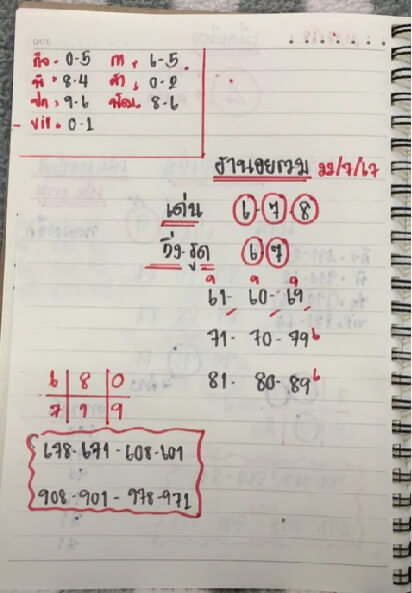 DATE
กิจ. 0-5 ก. 6-5.
พิ. 8-4 ค้า. 0-2
ปก. 9-6 พัฒ. 8-6
vip. 0-1
ฮานอยรวม 22/7/67
เด่น 6.7.8
วิ่งรูด 6.7
61- 60- 69
71- 70- 79
81- 80- 89
6 8 0
7 1 9
678-671-608-601
908-901-978-971